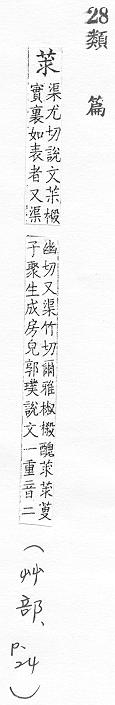 28類篇
莍
渠尤切說文茮樧
實裏如表者又渠
幽切又渠竹切爾雅椒樧醜莍莍萸
子聚生成房皃郭璞說文一重音二
(艸部、p.24)